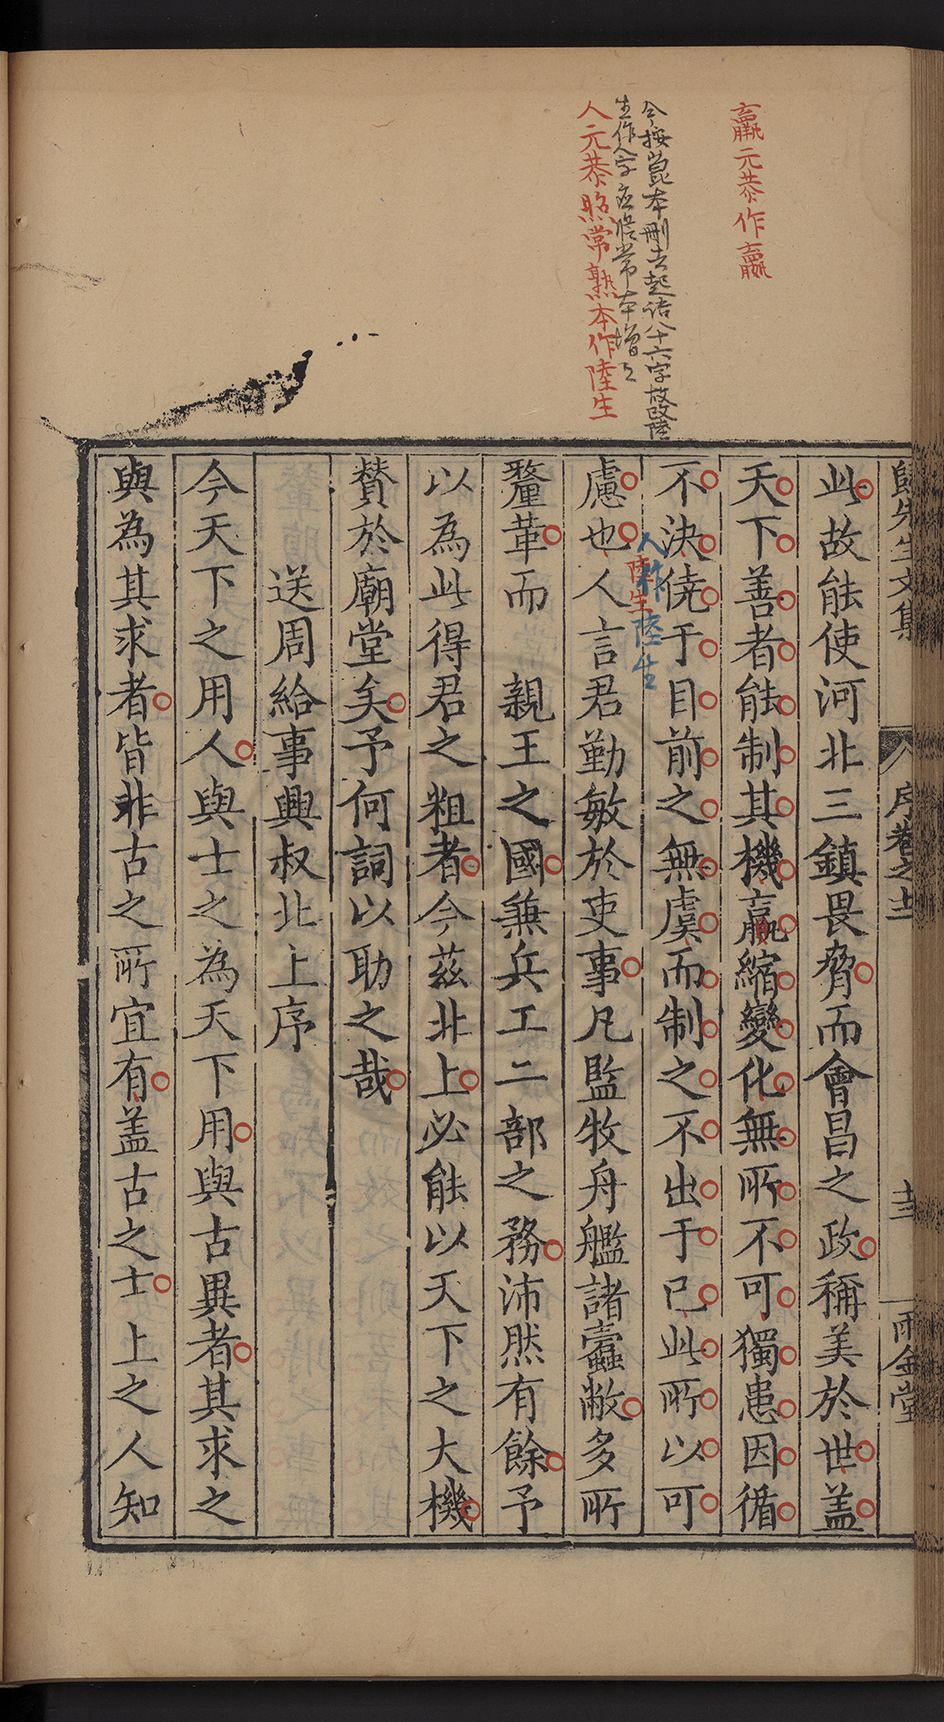 嬴元恭作贏
今按崑本刪去起訖八十六字故改陸
生作人字應照常本增之
人元恭照常熟本作陸生
歸先生文集
八
序卷之十二
十三
雨金堂
此故能使河北三鎮畏脅而會昌之政稱美於世蓋
天下善者能制其機嬴縮變化無所不可獨患因循
不決僥于目前之無虞而制之不出于已此所以可
人作陸生
陸生
慮也人言君勤敏於吏事凡監牧舟艦諸蠹敝多所
釐革而 親王之國兼兵工二部之務沛然有餘予
以為此得君之粗者今茲北上必能以天下之大機
贊於廟堂矣予何詞以助之哉
送周給事興叔北上序
今天下之用人與士之為天下用與古異者其求之
與為其求者皆非古之所宜有盖古之士上之人知